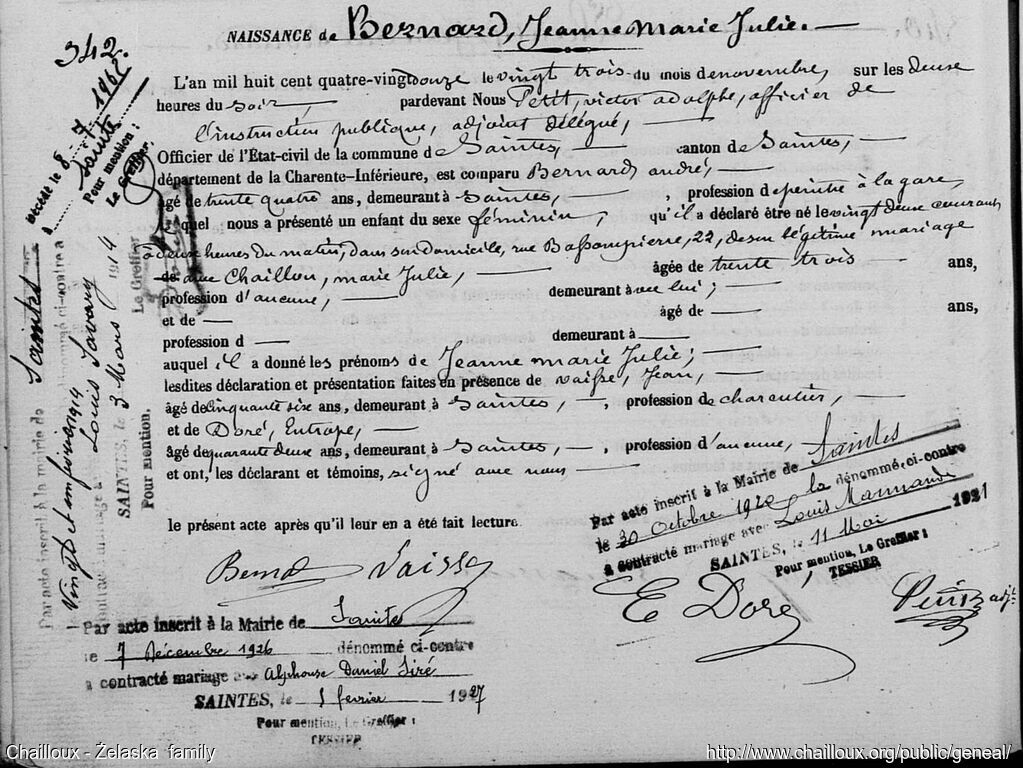 342.
NAISSANCE de Bernard, Jeanne Marie Julie. —
L'an mil huit cent quatre-vingt douze le vingt trois du mois de novembre, sur les deux
heures du soir, — pardevant Nous Petit, victor adolphe, officier de
l'instruction publique, adjoint délégué, —
Officier de l'État-civil de la commune de Saintes, — canton de Saintes, —
département de la Charente-Inférieure, est comparu Bernard andré, —
âgé de trente quatre ans, demeurant à Saintes, — , profession de peintre à la gare,
lequel nous a présenté un enfant du sexe féminin, qu'il a déclaré être né le vingt deux courant
à deux heures du matin, dans son domicile, rue Bassompierre, 22, de son légitime mariage
avec Chaillou, marie Julie, — âgée de trente trois — ans,
profession d'aucune, — demeurant à avec lui ; —
et de — âgé de — ans,
profession d — demeurant à —
auquel il a donné les prénoms de Jeanne marie Julie ; —
lesdites déclaration et présentation faites en présence de vaisse, Jean, —
âgé de cinquante six ans, demeurant à Saintes, — , profession de charcutier, —
et de Doré, Eutrope, —
âgé de quarante deux ans, demeurant à Saintes, — , profession d'aucune, —
et ont, les déclarant et témoins, signé avec nous —
le présent acte après qu'il leur en a été fait lecture.
Vaisse
E Doré
Petit adjt
Par acte inscrit à la Mairie de Saintes
le 30 octobre 1920 la dénommé ci-contre
a contracté mariage avec Louis Marmande
SAINTES, le 11 Mai 1921
Pour mention, Le Greffier :
TESSIER
Par acte inscrit à la Mairie de Saintes
le 7 décembre 1926 dénommé ci-contre
a contracté mariage avec Alphonse Daniel Siré
SAINTES, le 1 février 1927
Pour mention, Le Greffier :
TESSIER
Par acte inscrit à la mairie de Saintes
le vingt et un février 1914 dénommé ci-contre a
contracté mariage à Louis Savary
SAINTES, le 3 Mars 1914
Pour mention. Le Greffier
8 - 7 -
Sainte
Pour mention :
Le Greffier.
Chailloux - Želaska family
http://www.chailloux.org/public/geneal/